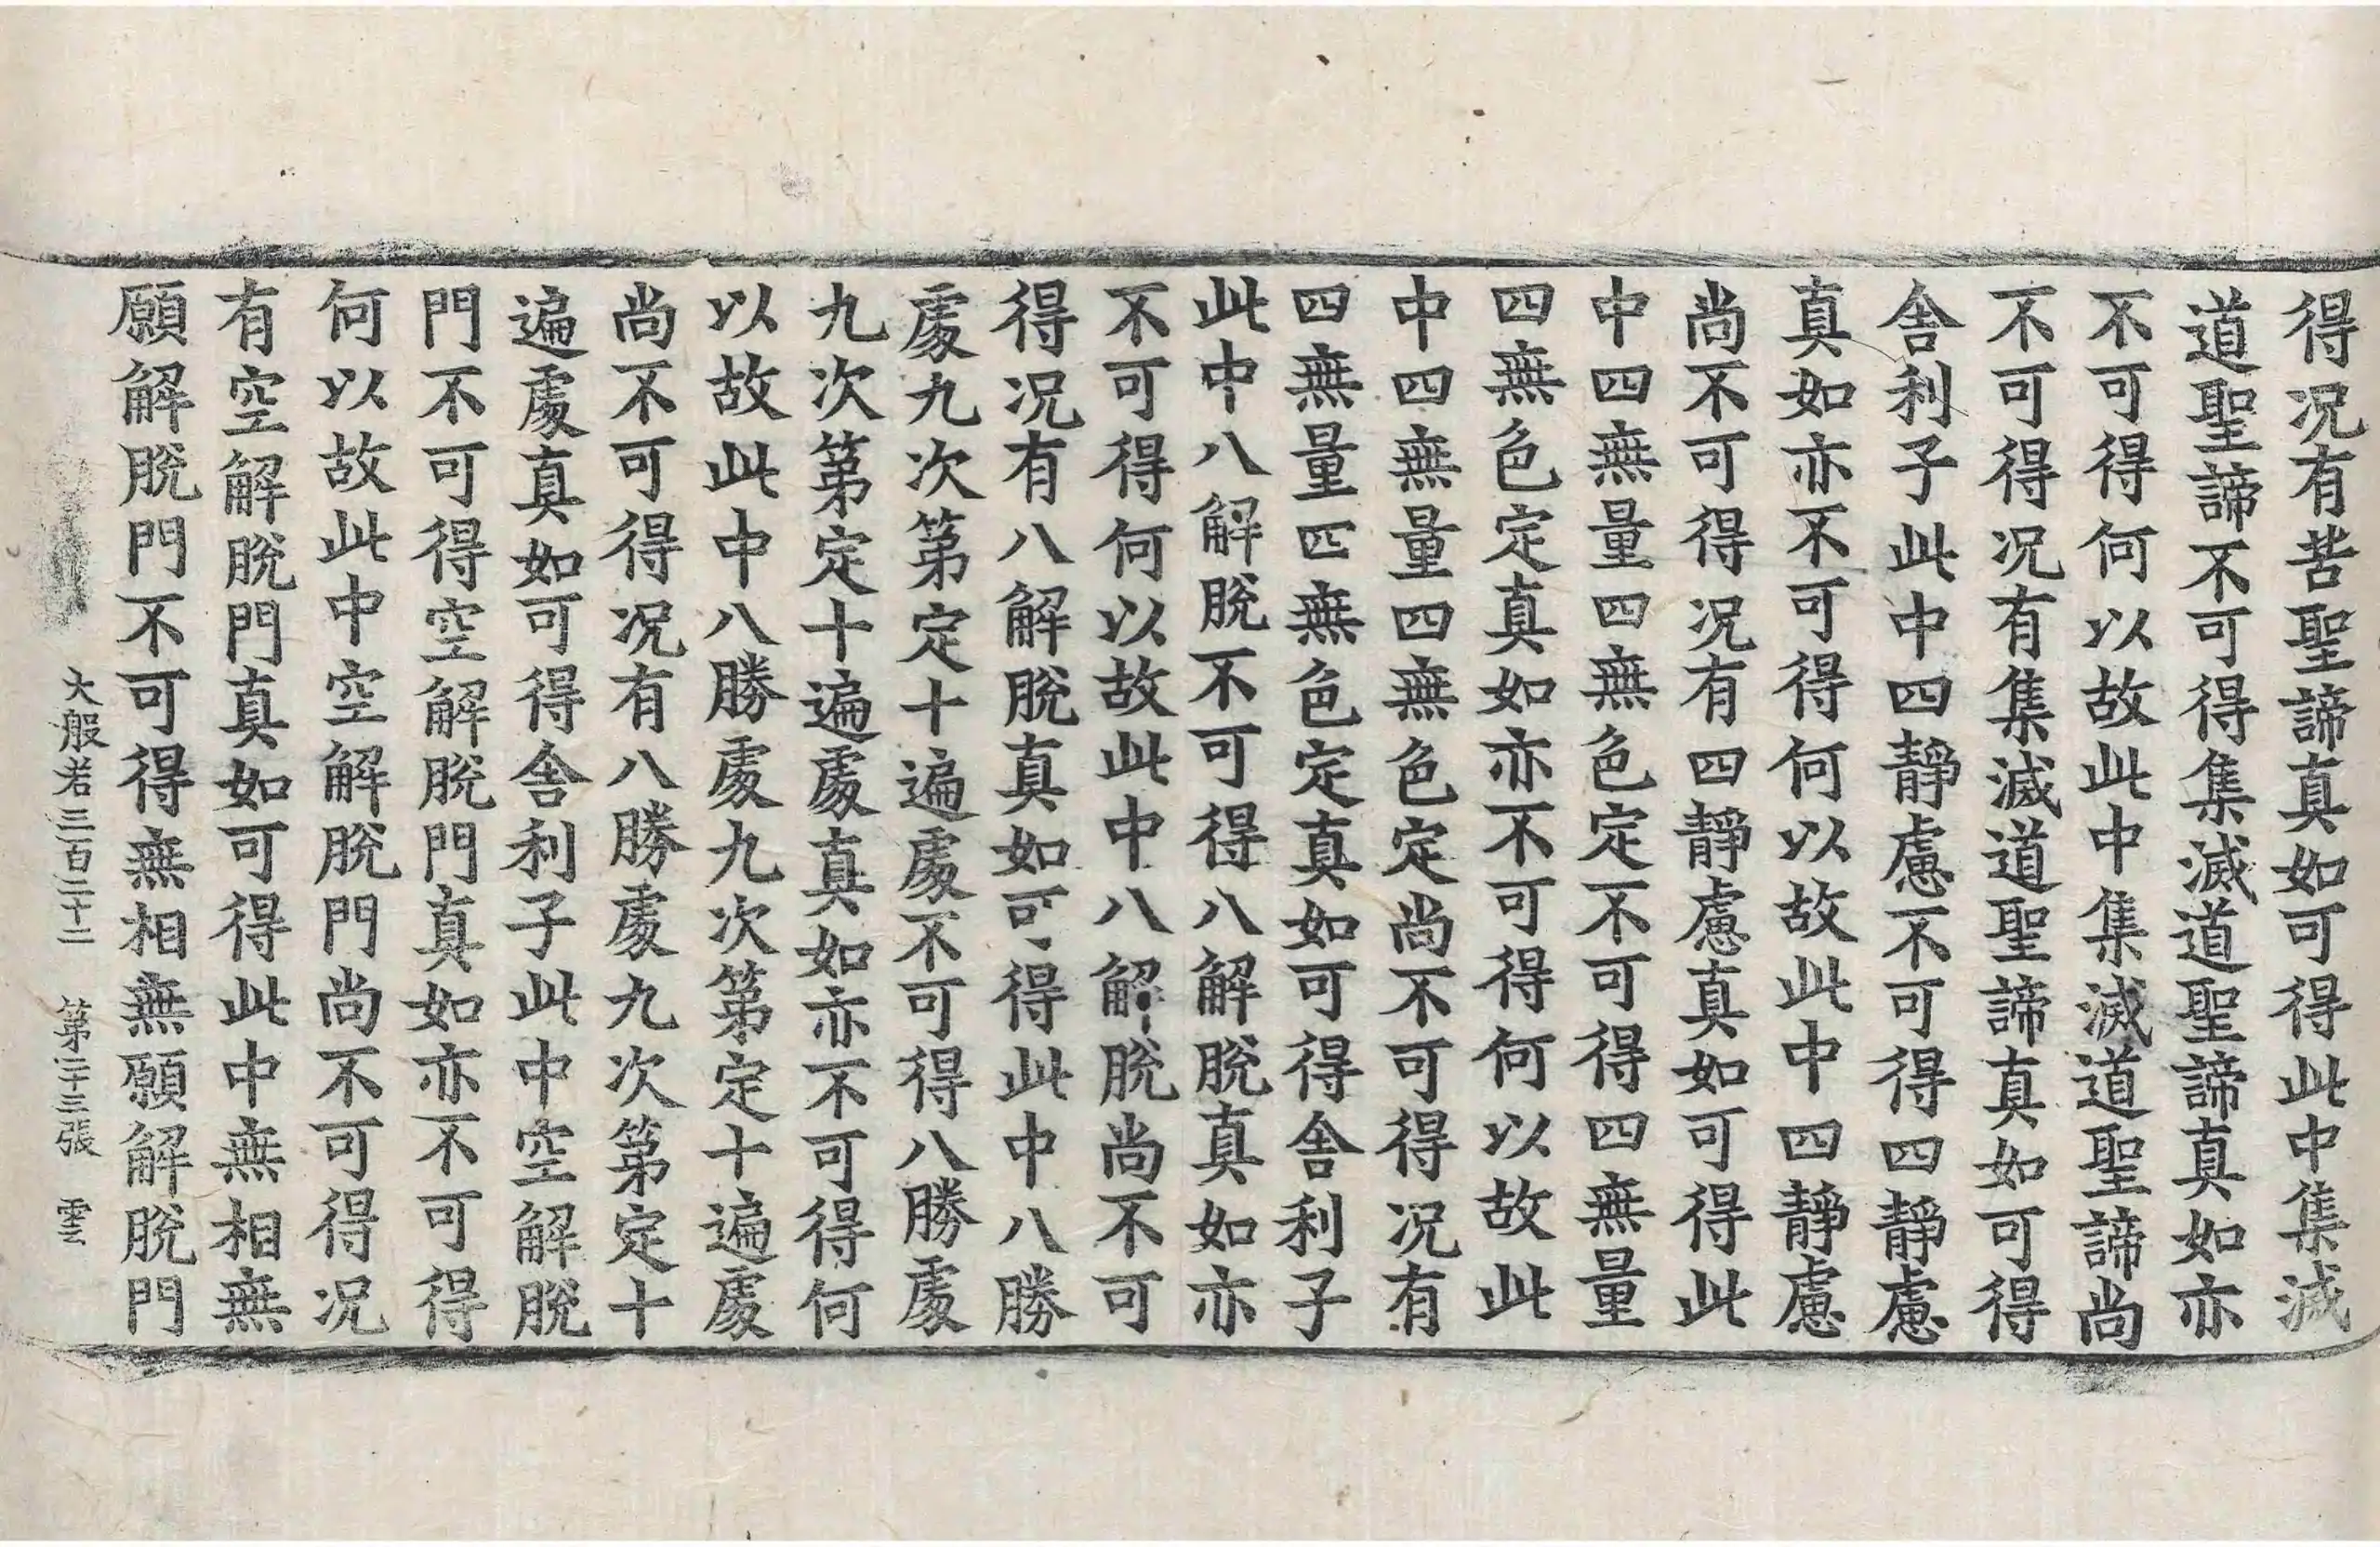 得况有苦聖諦真如可得此中集滅
道聖諦不可得集滅道聖諦真如亦
不可得何以故此中集滅道聖諦尚
不可得况有集滅道聖諦真如可得
舍利子此中四靜慮不可得四靜慮
真如亦不可得何以故此中四靜慮
尚不可得况有四靜慮真如可得此
中四無量四無色定不可得四無量
四無色定真如亦不可得何以故此
中四無量四無色定尚不可得况有
四無量四無色定真如可得舍利子
此中八解脫不可得八解脫真如亦
不可得何以故此中八解脫尚不可
得况有八解脫真如可得此中八勝
處九次第定十遍處不可得八勝處
九次第定十遍處真如亦不可得何
以故此中八勝處九次第定十遍處
尚不可得况有八勝處九次第定十
遍處真如可得舍利子此中空解脫
門不可得空解脫門真如亦不可得
何以故此中空解脫門尚不可得况
有空解脫門真如可得此中無相無
願解脫門不可得無相無願解脫門
大般若三百二十二 第二十三張 雲